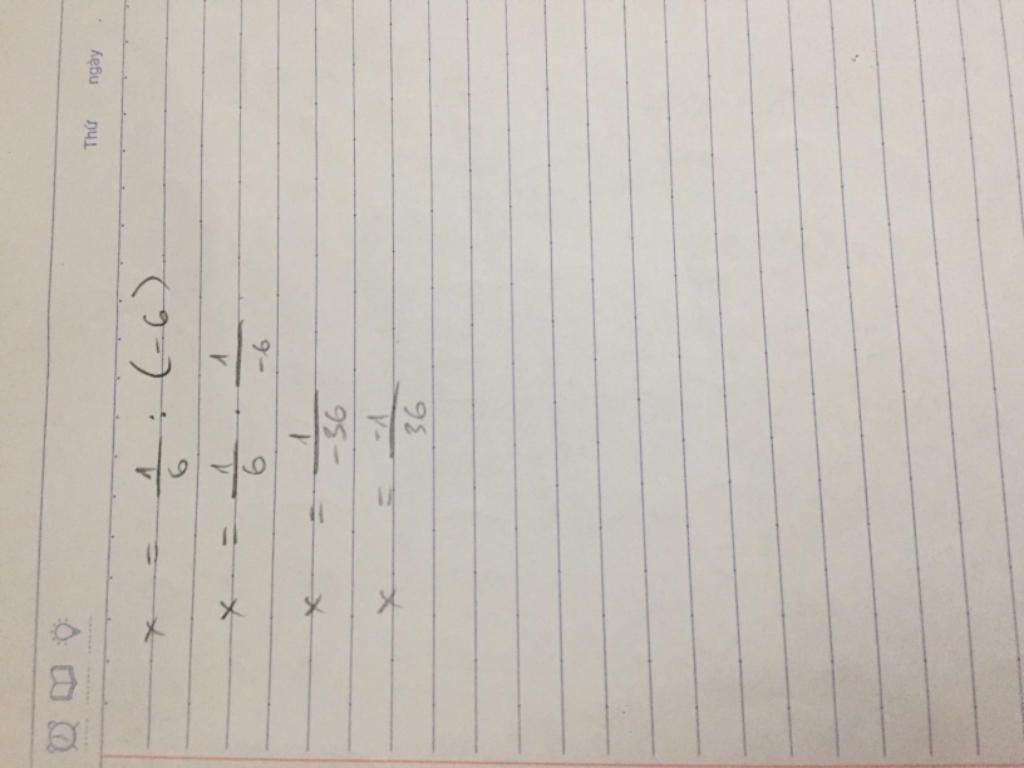 Thứ ngày
x = 1/6 : (-6)
x = 1/6 . 1/-6
x = 1/-36
x = -1/36